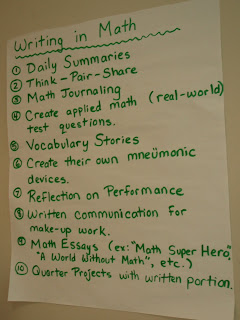 Writing in Math
① Daily Summaries
② Think-Pair-Share
③ Math Journaling
④ Create applied math (real-world)
test questions.
⑤ Vocabulary Stories
⑥ Create their own mneümonic
devices.
⑦ Reflection on Performance
⑧ Written communication for
make-up work.
⑨ Math Essays (ex: "Math Super Hero,"
"A World Without Math", etc.)
⑩ Quarter Projects with written portion.